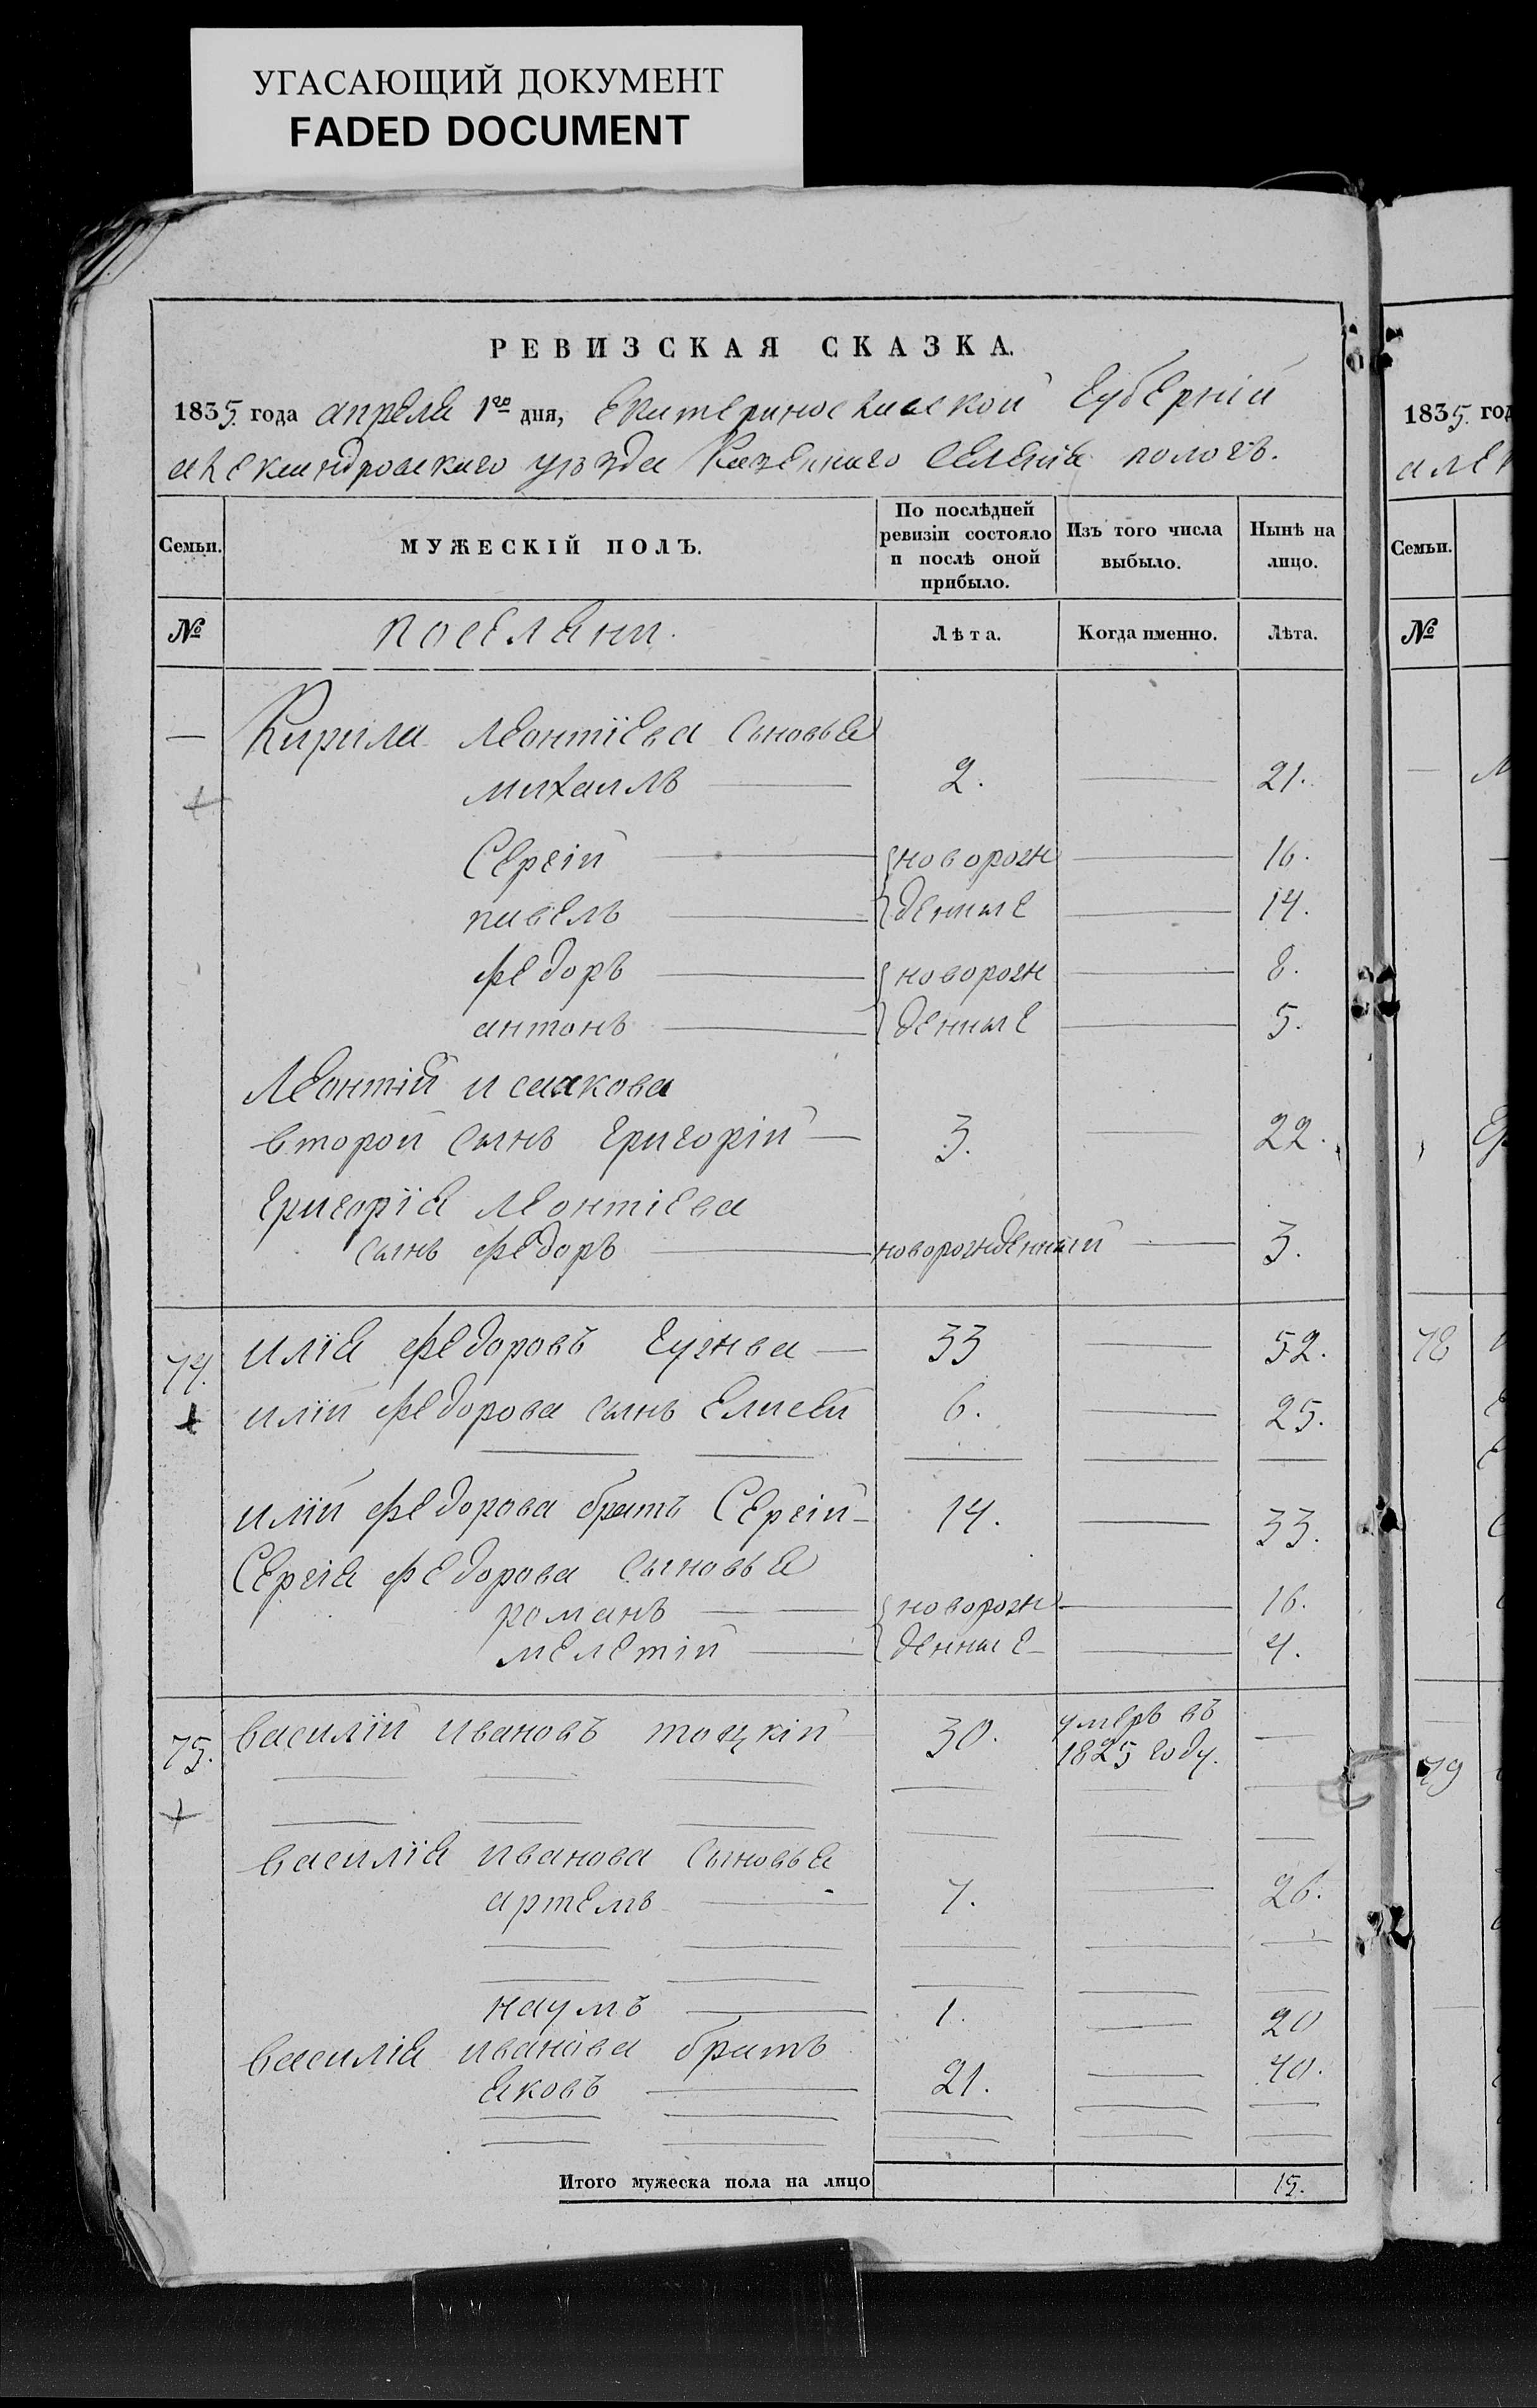 УГАСАЮЩИЙ ДОКУМЕНТ
FADED DOCUMENT
РЕВИЗСКАЯ СКАЗКА.
1835. года апреля 1го дня, Екатеринославской Губерніи
александровскаго уѣзда Казеннаго Селенія пологъ.
Семьи. МУЖЕСКІЙ ПОЛЪ. По послѣдней ревизіи состояло и послѣ оной прибыло. Изъ того числа выбыло. Нынѣ на лицо.
№ поселяни. Лѣта. Когда именно. Лѣта.
— Кирила Леонтіева Сыновья
михаилъ — 2. — 21.
Сергій — новорож — 16.
павелъ — денные — 14.
федоръ — новорож — 8.
антонъ — денные — 5.
Леонтій исаакова
второй Сынъ Григорій — 3. — 22.
Григорія Леонтіева
сынъ федоръ — новорожденный — 3.
74. илія федоровъ — 33 — 52.
иліи федорова сынъ Елисей 6. — 25.
иліи федорова братъ Сергій — 14. — 33.
Сергія федорова Сыновья
романъ — новорож — 16.
мелетій — денные — 4.
75. василій ивановъ тоцкій 30. умеръ въ —
1825 году.
василія иванова Сыновья
артемъ — 7. — 26.
наумъ — 1. — 20
василія иванова братъ
яковъ — 21. — 40.
Итого мужеска пола на лицо 15.
1835. год
алек
Семьи.
№
78
79